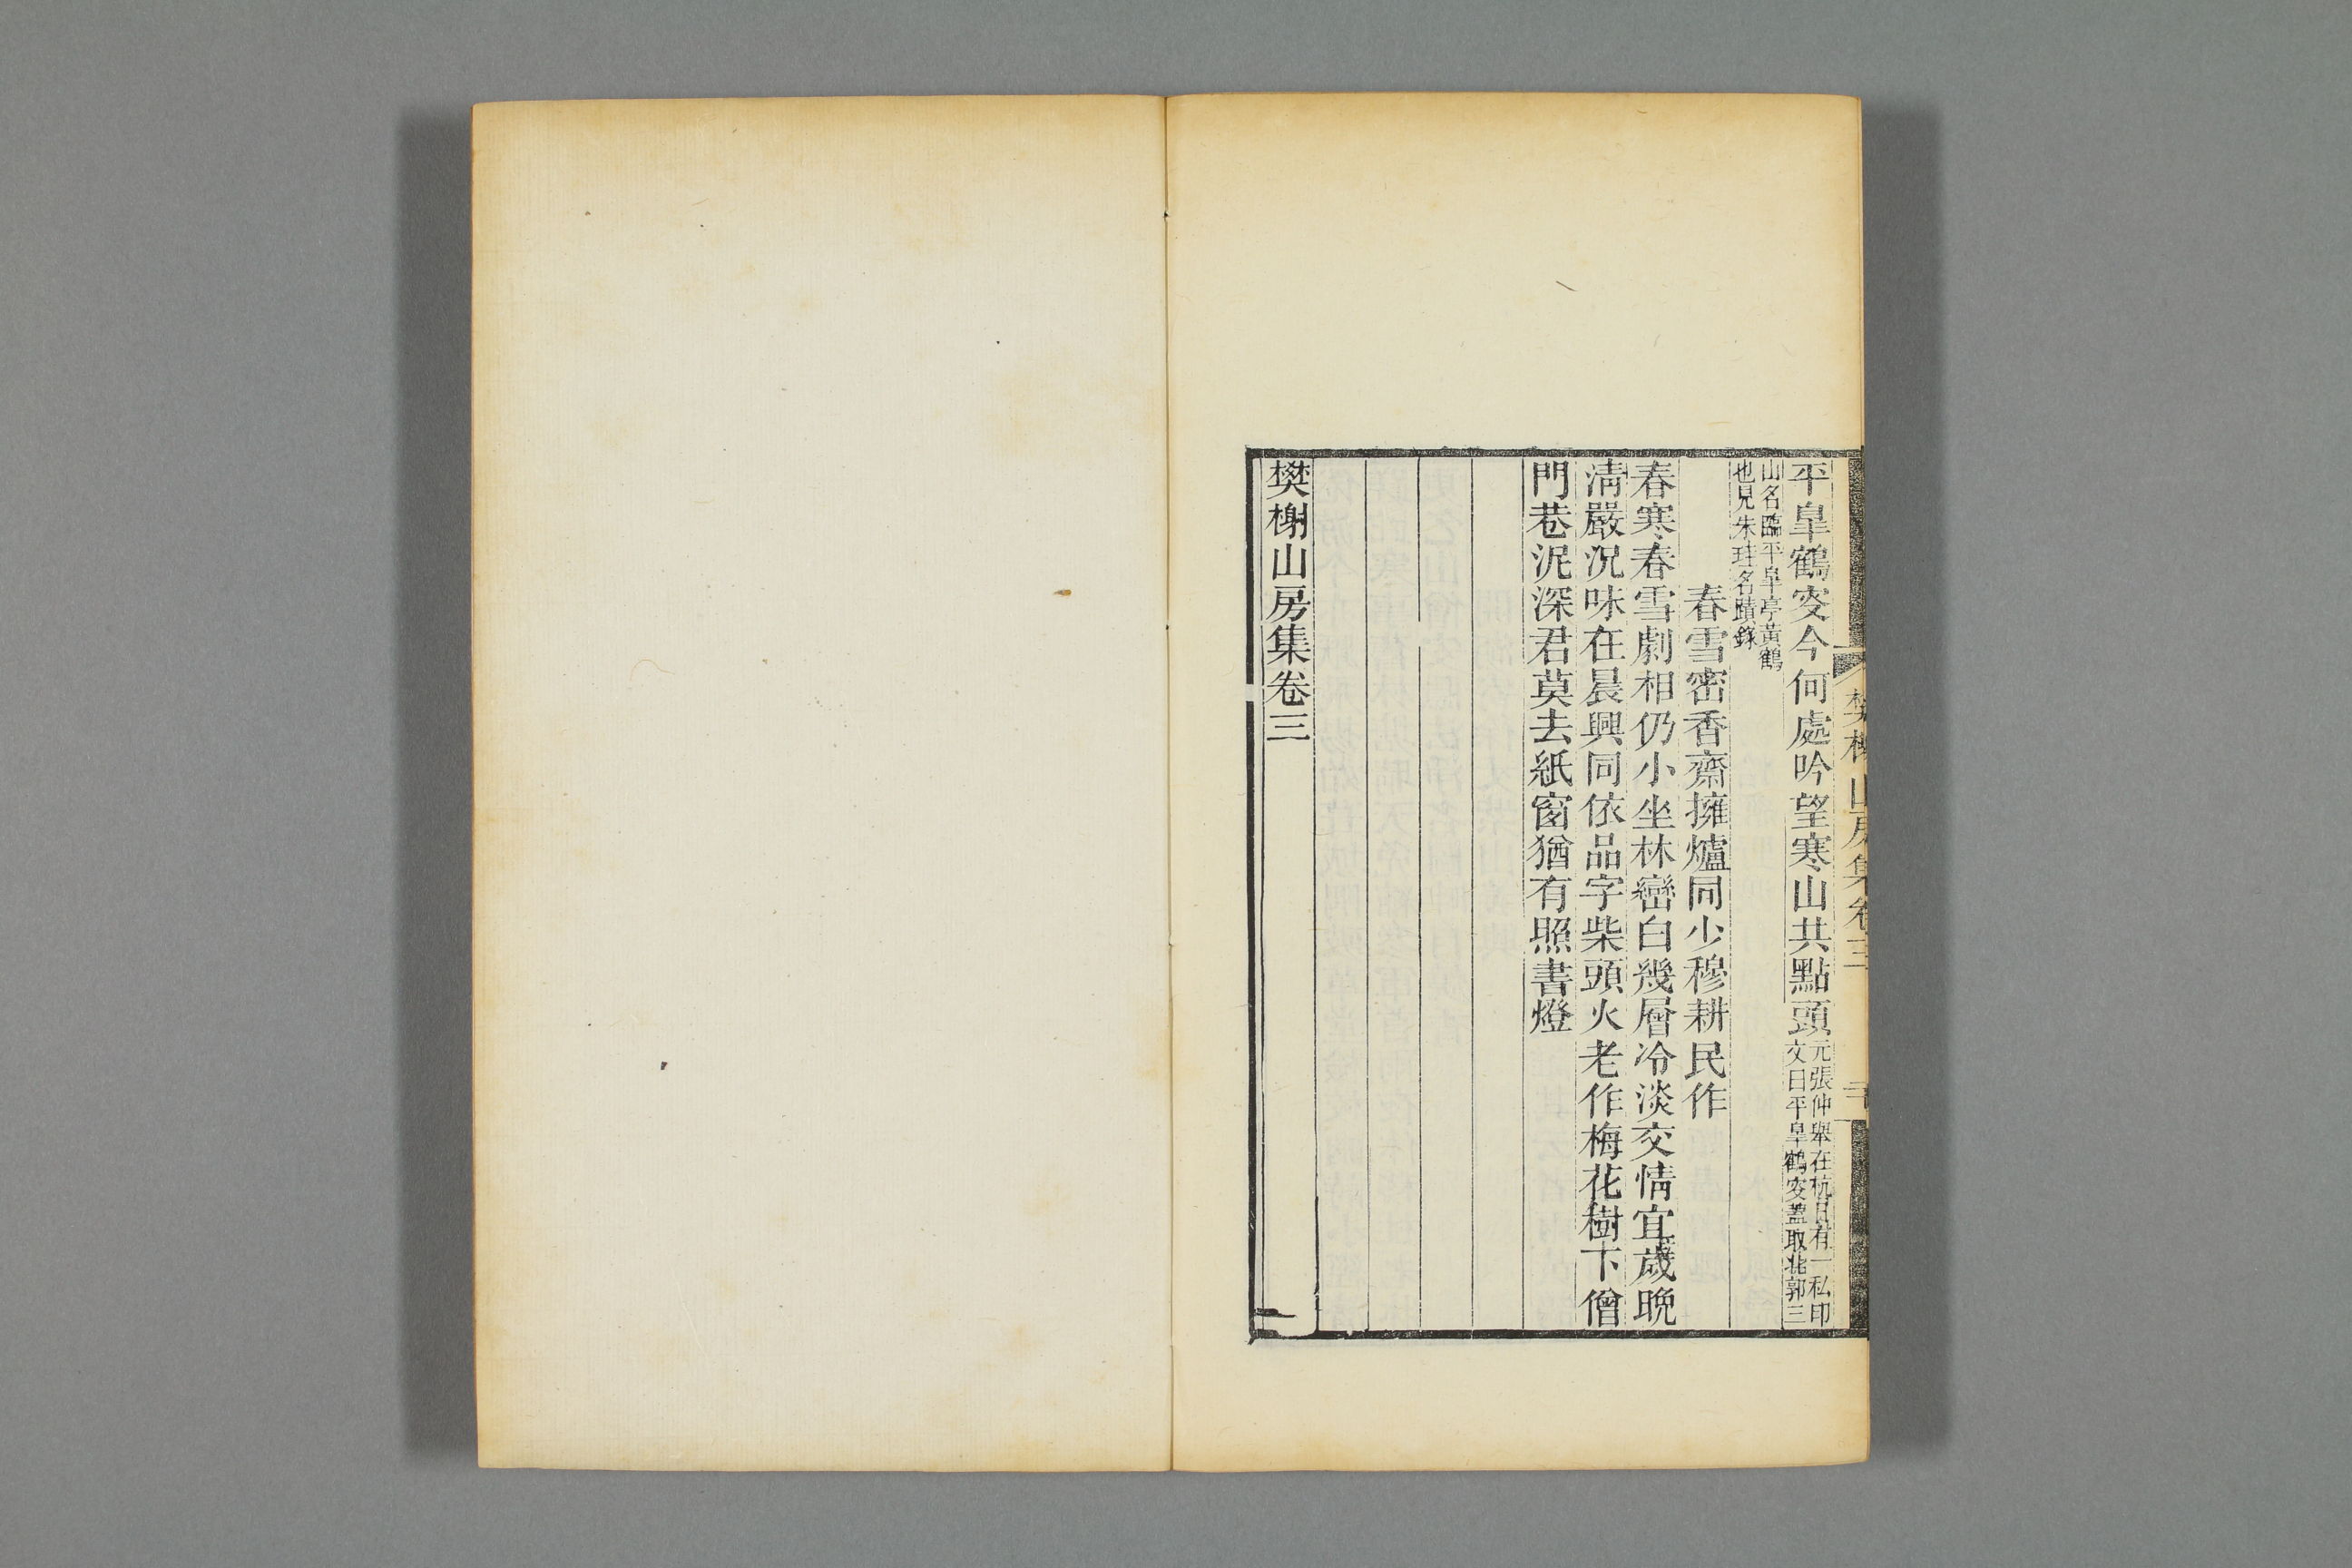 平皐鶴叜今何處吟望寒山共點頭元張仲舉在杭日有一私印
文曰平皐鶴叜蓋取北郭三
山名臨平皐亭黃鶴
也見朱珪名蹟錄
春雪密香齋擁爐同少穆耕民作
春寒春雪劇相仍小坐林巒白幾層冷淡交情宜歲晚
淸嚴況味在晨興同依品字柴頭火老作梅花樹下僧
門巷泥深君莫去紙窗猶有照書燈
樊榭山房集卷三
樊榭山房集卷三